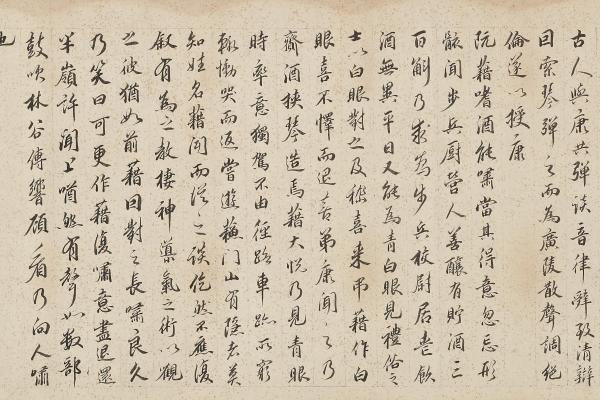 古人與康共彈談音律辭致清辯
因索琴彈之而為廣陵散聲調絕
倫遂以授康
阮藉嗜酒能嘯當其得意忽忘形
骸聞步兵厨營人善釀有貯酒三
百斛乃求為步兵校尉居喪飲
酒無異平日又能為青白眼見禮俗之
士以白眼對之及嵇喜来弔藉作白
眼喜不懌而退喜弟康聞之乃
齎酒挾琴造焉藉大悅乃見青眼
時率意獨駕不由徑路車跡所窮
輒慟哭而返嘗遊蘇門山有隱者莫
知姓名藉聞而從之談仡然不應復
叙有為之教棲神導氣之術以觀
之彼猶如前藉因對之長嘯良久
乃笑曰可更作藉復嘯意盡退還
半嶺許聞上啾然有聲如數部
鼓吹林谷傳響顧看乃向人嘯
也